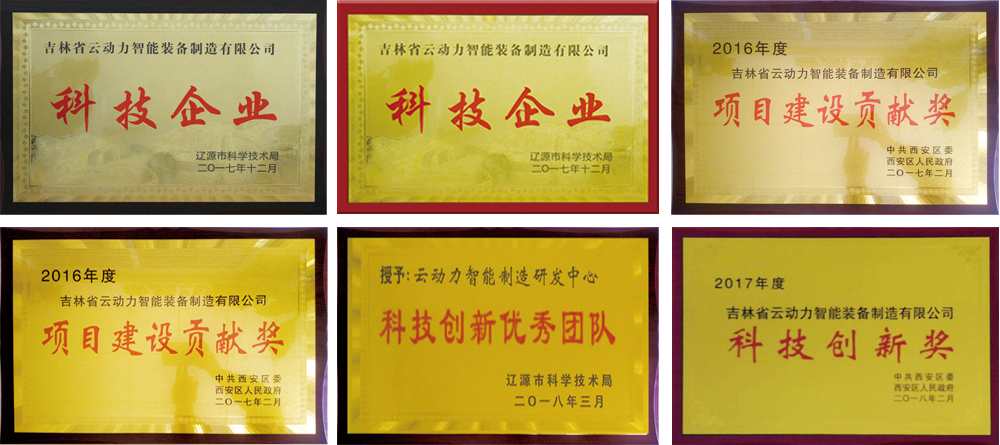 吉林省云动力智能装备制造有限公司
科技企业
辽源市科学技术局
二〇一七年十二月
吉林省云动力智能装备制造有限公司
科技企业
辽源市科学技术局
二〇一七年十二月
2016年度
吉林省云动力智能装备制造有限公司
项目建设贡献奖
中共西安区委
西安区人民政府
二〇一七年二月
2016年度
吉林省云动力智能装备制造有限公司
项目建设贡献奖
中共西安区委
西安区人民政府
二〇一七年二月
授予:云动力智能制造研发中心
科技创新优秀团队
辽源市科学技术局
二〇一八年三月
2017年度
吉林省云动力智能装备制造有限公司
科技创新奖
中共西安区委
西安区人民政府
二〇一八年二月